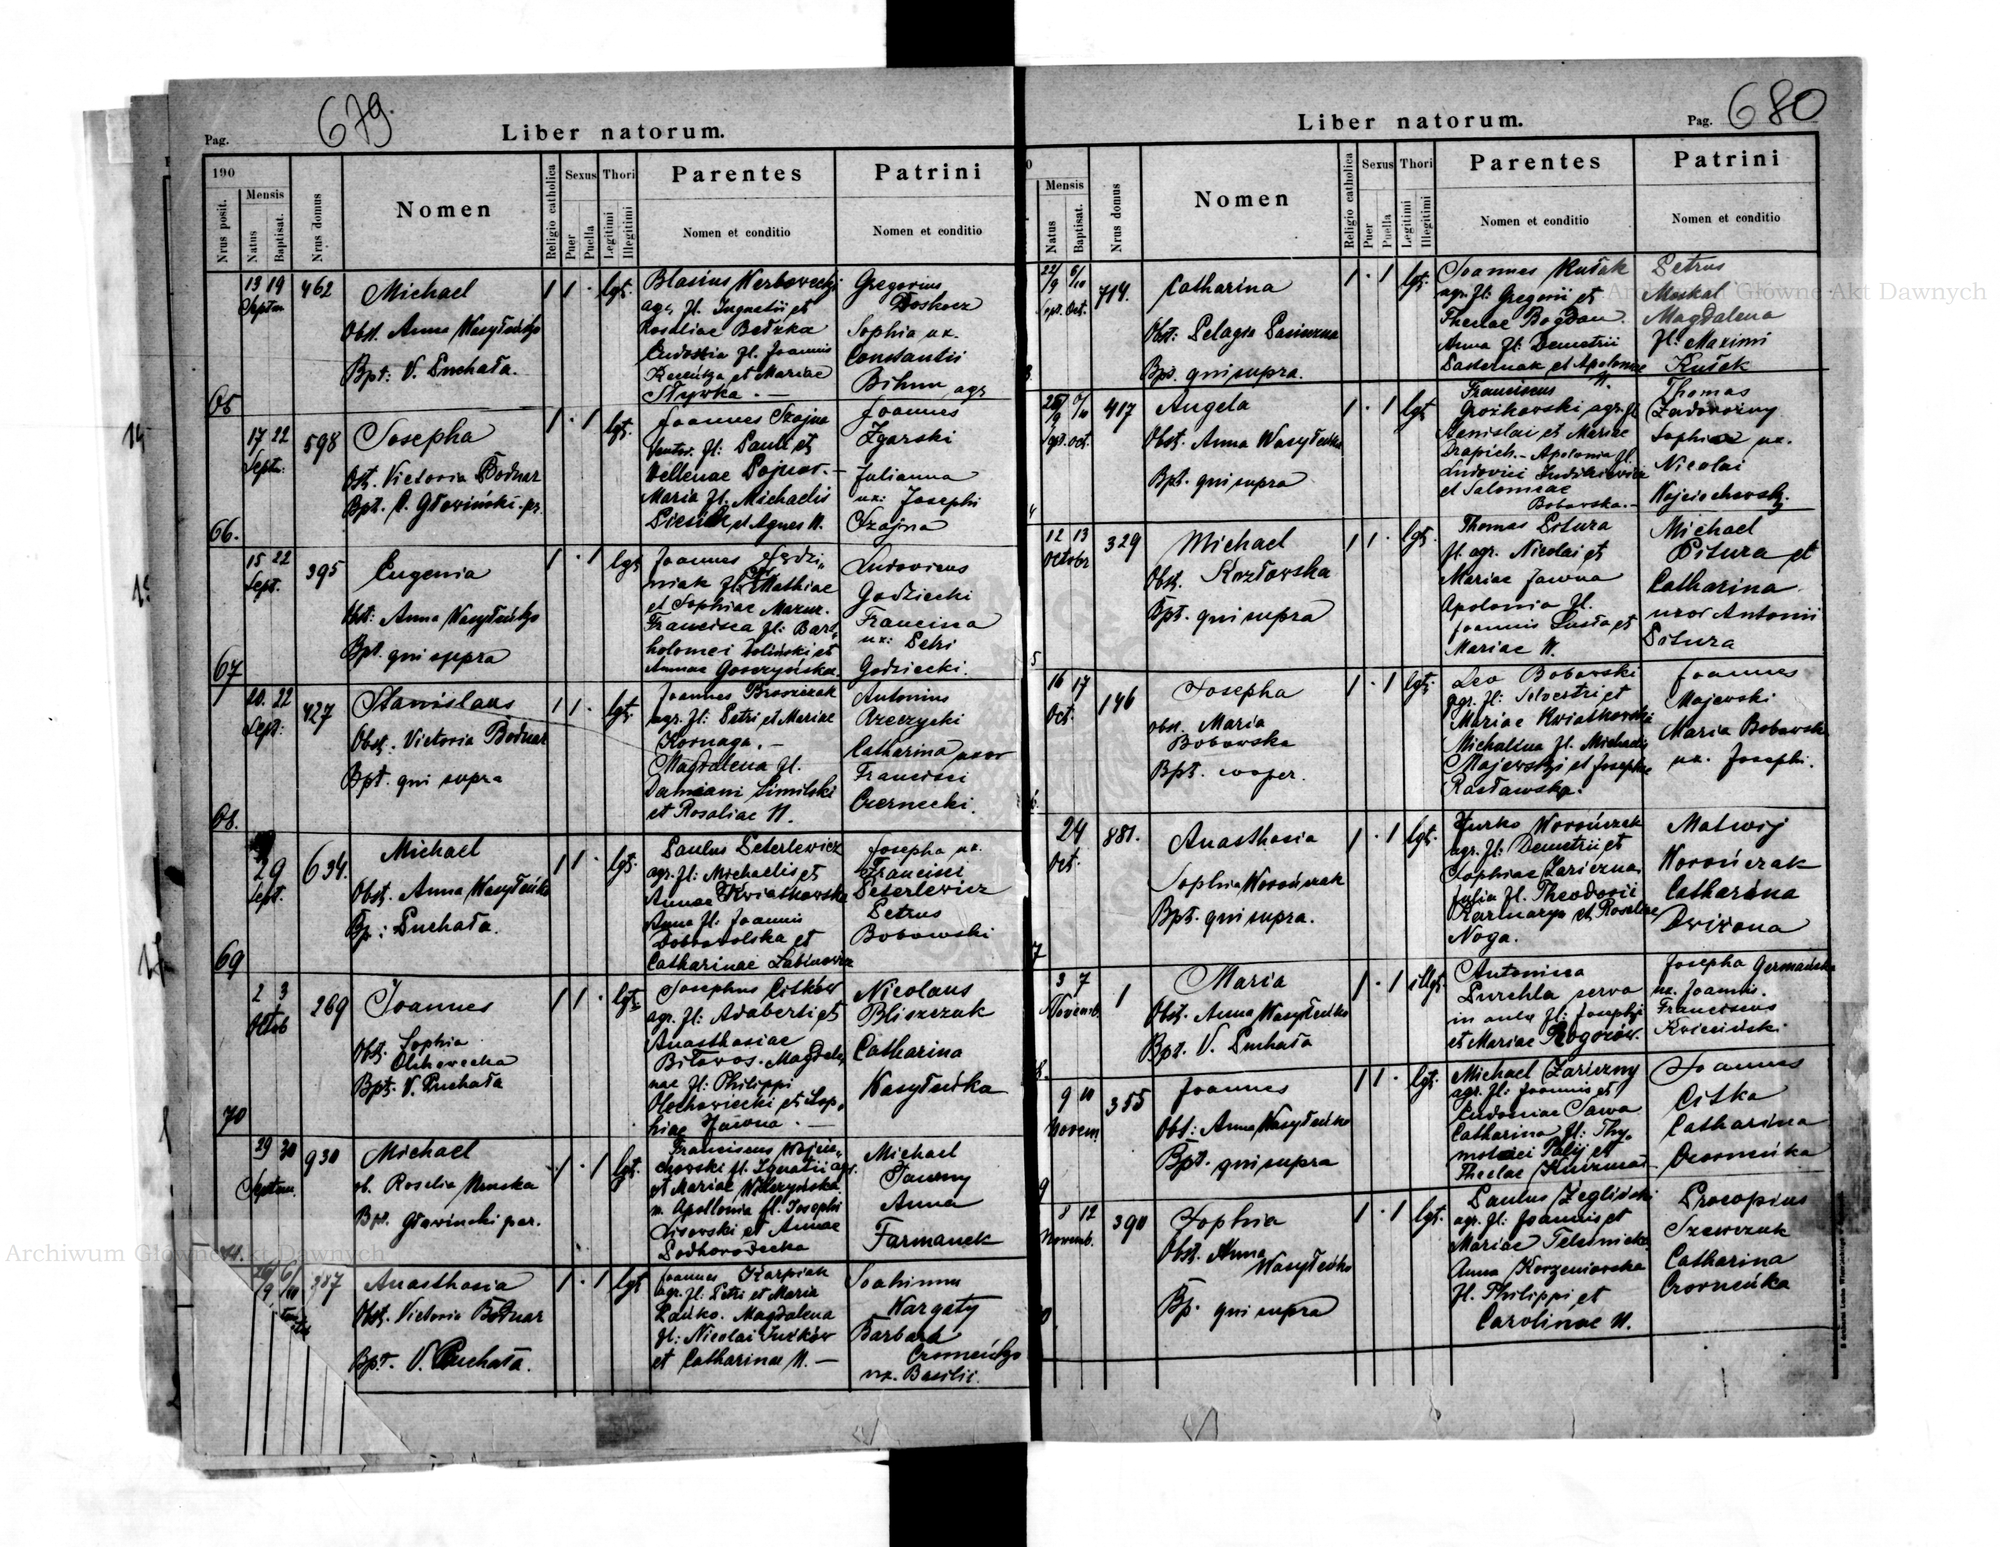 679.
Pag.
Liber natorum.
190
Nrus posit.
Mensis
Natus
Baptisat.
Nrus domus
Nomen
Religio catholica
Sexus
Puer
Puella
Thori
Legitimi
Illegitimi
Parentes
Nomen et conditio
Patrini
Nomen et conditio
13 19
Septem
462
Michael
Obst. Anna Wasyleńko
Bpt: V. Puchała.
1 1 · lgt.
Blasius Werbowecki
agr. fl. Ignatii et
Rosaliae Bedzka
Eudoxia fl. Joannis
et Mariae
Gregorius
Doskocz
Sophia ux.
Constantii
Bihun agr
65
17 22
Sept.
598
Josepha
Obst. Victoria Bodnar
Bpt. A. Głowiński. pr.
1 · 1 lgt.
Joannes Szajna
fl: Pauli et
Maria fl. Michaelis
et Agnes N.
Joannes
Zgarski
Julianna
ux: Josephi
Szajna
66.
15 22
Sept.
395
Eugenia
Obst: Anna Wasyleńko
Bpt. qui supra
1 · 1 lgt
Joannes
niak fl: Mathiae
et Sophiae Mazur.
Francisca fl: Bart„
holomei Woliński et
Annae Goszczyńska.
Ludovicus
Godziecki
Francisca
ux: Petri
Godziecki.
67
20. 22
Sept:
427
Stanislaus
Obst. Victoria Bodnar
Bpt. qui supra
1 1 · lgt.
Joannes Broszczak
agr. fl: Petri et Mariae
Kornaga. –
Magdalena fl.
Damiani Similski
et Rosaliae N.
Antonius
Rzeczycki
Catharina uxor
Francisci
Czernecki.
68.
29
Sept.
634.
Michael
Obst. Anna Wasyleńko
Bp: Puchała.
1 1 · lgt.
Paulus Peterlewicz
agr. fl: Michaelis et
Annae Kwiatkowska
Anna fl: Joannis
Dobrowolska et
Catharinae
Josepha ux.
Francisci
Peterlewicz
Petrus
Bobowski
69
2 3
Octob
269
Joannes
Obst. Sophia
Olchowecka
Bpt: V. Puchała
1 1 · lgt.
Josephus Citków
agr. fl: Adalberti et
Anasthasiae
Biławos. Magdale„
nae fl: Philippi
Olechowiecki et Sop„
hiae Jawna. –
Nicolaus
Bliszczak
Catharina
Wasyleńka
70
29 30
Septem.
930
Michael
ob. Rosalia
Bpt. Głowincki par.
· 1 · 1 lgt.
Franciscus Wojcie„
chowski fl. Ignatii agr.
et Mariae Wilczyńska
u. Apollonia fl. Josephi
Lisowski et Annae
Podhorodecka
Michael
Jawny
Anna
Furmanek
71.
26/9 6/10
387
Anasthasia
Obst. Victoria Bodnar
Bpt. V. Puchała.
1 · 1 lgt
Joannes Karpiak
agr. fl: Petri et Maria
Łańko. Magdalena
fl: Nicolai Juśków
et Catharinae N. –
Joahimm
Wargaty
Barbara
ux. Basilii.
Liber natorum.
Pag. 680
Mensis
Natus
Baptisat.
Nrus domus
Nomen
Religio catholica
Sexus
Puer
Puella
Thori
Legitimi
Illegitimi
Parentes
Nomen et conditio
Patrini
Nomen et conditio
22/9 6/10
Sept. Oct.
714.
Catharina
Obst: Pelagia
Bpt. qui supra.
1 · 1 lgt.
Joannes Kułak
agr. fl: Gregorii et
Theclae Bogdan.
Anna fl: Demetrii
Pasternak et Apolonia
N.
Petrus
Moskal
Magdalena
fl: Maximi
Kułak
Sept. Oct.
417
Angela
Obst. Anna Wasyleńko
Bpt. qui supra
1 · 1 lgt
Franciscus
agr. fl
Stanislai et Mariae
Drapich. – Apolonia fl.
Ludovici
et Salomeae
Bobowska. –
Thomas
Zadorożny
Sophia ux.
Nicolai
Wojciechowsky.
4
12 13
Octobr
329
Michael
Obst. Kozłowska
Bpt. qui supra
1 1 · lgt.
Thomas Pitura
fl. agr. Nicolai et
Mariae Jawna
Apolonia fl.
Joannis et
Mariae N.
Michael
Pitura et
Catharina
uxor Antonii
Pitura
5
16 17
Oct.
146
Josepha
Obst. Maria
Bobowska
Bpt. cooper.
1 · 1 lgt.
Leo Bobowski
agr. fl: Silvestri et
Mariae Kwiatkowski
Michalina fl. Michaelis
Majewski et Josephae
Rosławska.
Joannes
Majewski
Maria Bobowsk
ux. Josephi.
6.
24
Oct.
881.
Anasthasia
Sophia Worończak
Bpt. qui supra.
1 · 1 lgt.
Jurko Worończak
agr. fl: Demetrii et
Sophiae Zariczna
Julia fl. Theodorii
et Rosaliae
Noga.
Matwij
Worończak
Catharina
Dwizona
7
3 7
Novemb.
1
Maria
Obst. Anna Wasyleńko
Bpt. V. Puchała
1 · 1 illgt.
Antonina
Purchla serva
in aula fl: Josephi
et Mariae Rogozów.
Josepha Germańska
ux. Joannis.
Franciscus
Kwieciński.
8.
9 10
Novem
355
Joannes
Obst: Anna Wasyleńko
Bpt. qui supra
1 1 · lgt.
Michael Zariczny
agr. fl: Joannis et
Eudociae Sawa
Catharina fl: Thy„
mothei Palij et
Theclae
Joannes
Citka
Catharina
9
8 12
Novemb.
390
Sophia
Obst. Anna
Wasyleńko
Bp. qui supra
1 · 1 lgt.
Paulus Zegliński
agr. fl: Joannis et
Mariae
Anna Korzeniowska
fl. Philippi et
Carolinae N.
Procopius
Szewczuk
Catharina
Czorneńka
0
Archiwum Główne Akt Dawnych
Archiwum Główne Akt Dawnych